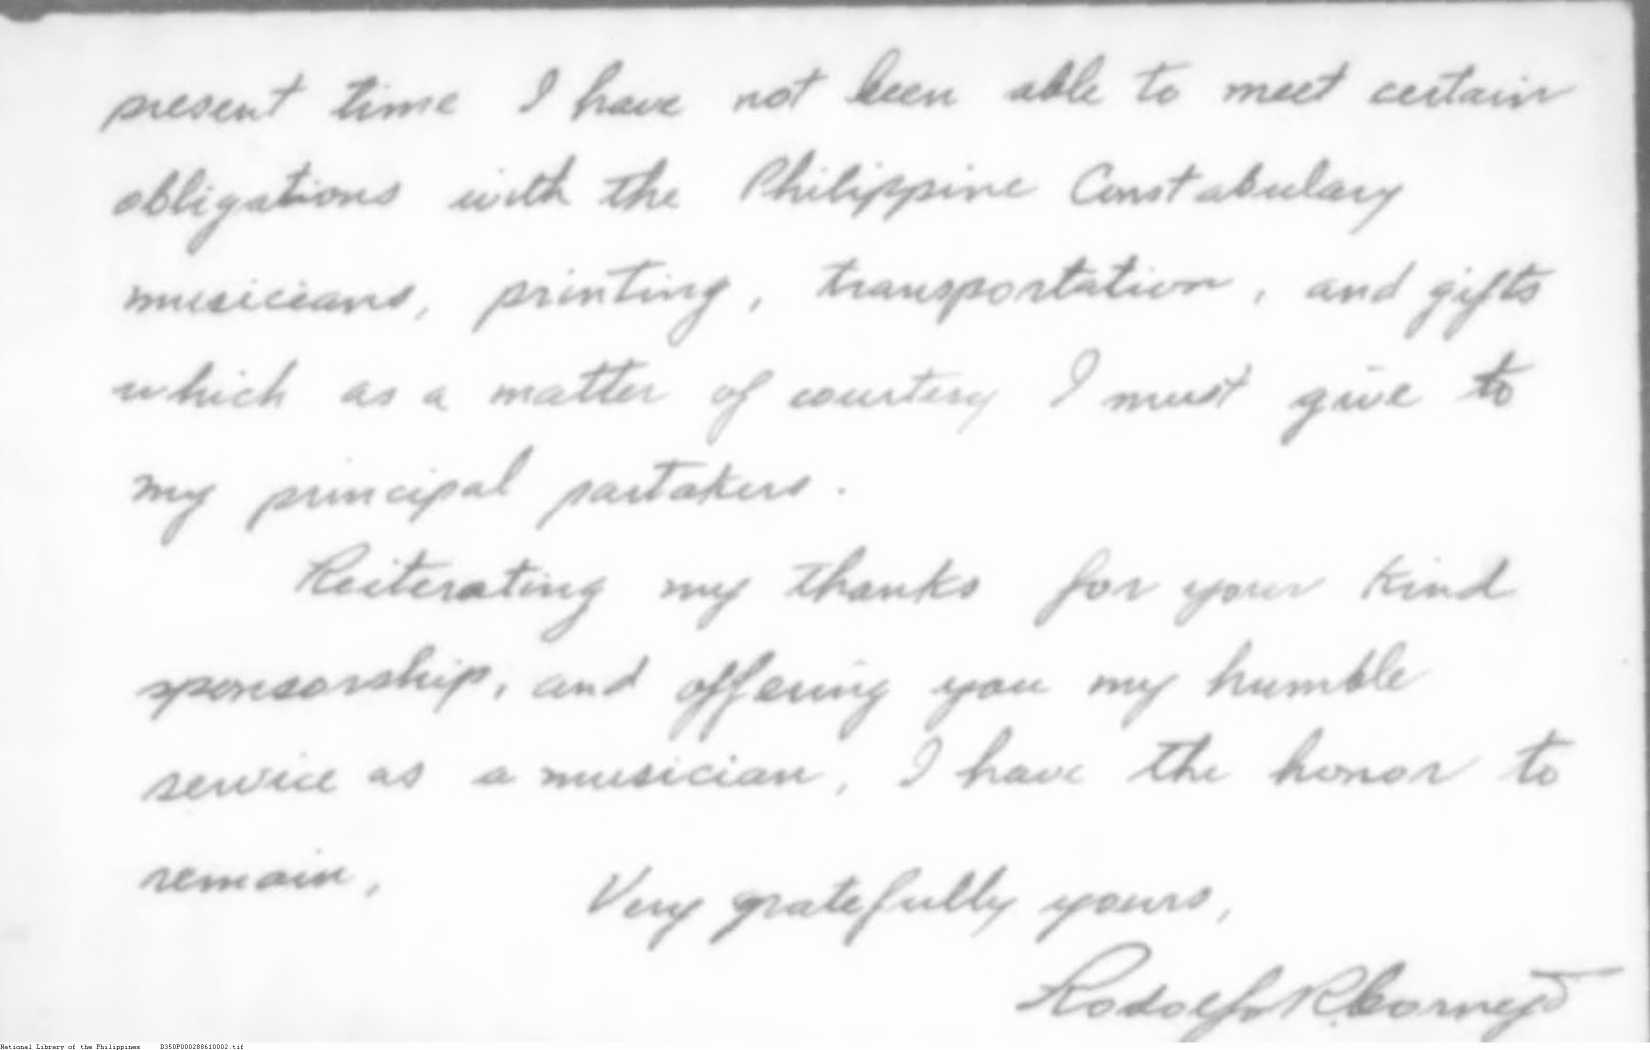 present time I have not been able to meet certain
obligations with the Philippine Constabulary
musicians, printing, transportation, and gifts
which as a matter of courtesy I must give to
my principal partakers.
Reiterating my thanks for your kind
sponsorship, and offering you my humble
service as a musician, I have the honor to
remain,
Very gratefully yours,
Rodolfo R. Cornejo
National Library of the Philippines B350P000288610002.tif